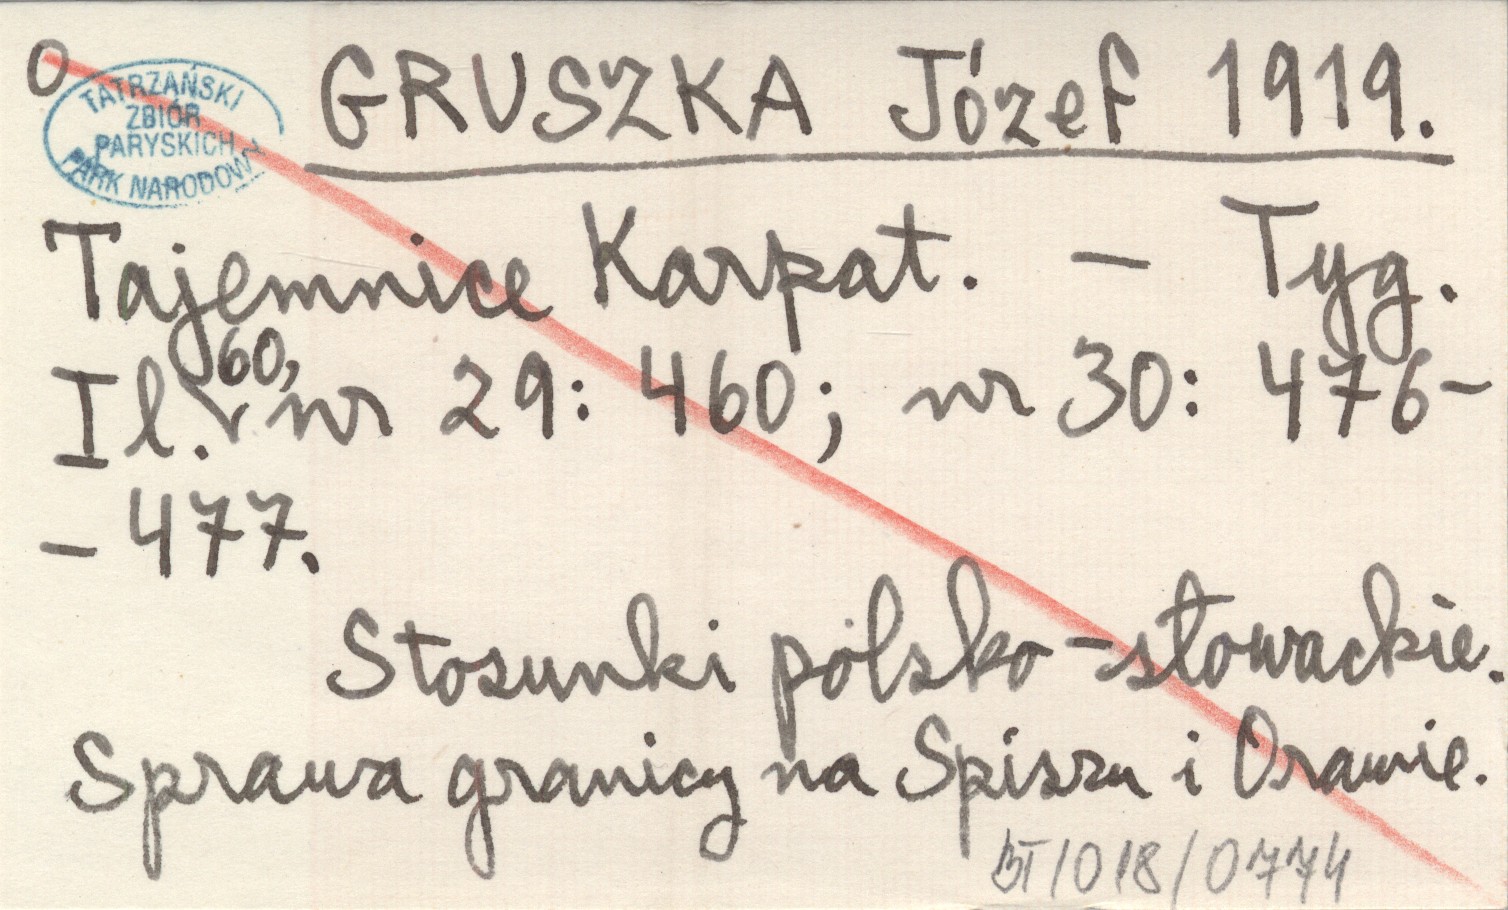 O
TATRZAŃSKI
ZBIÓR
PARYSKICH
PARK NARODOWY
GRUSZKA Józef 1919.
Tajemnice Karpat. — Tyg.
Il. 60, nr 29: 460; nr 30: 476-
-477.
Stosunki polsko-słowackie.
Sprawa granicy na Spiszu i Orawie.
BT/018/0774